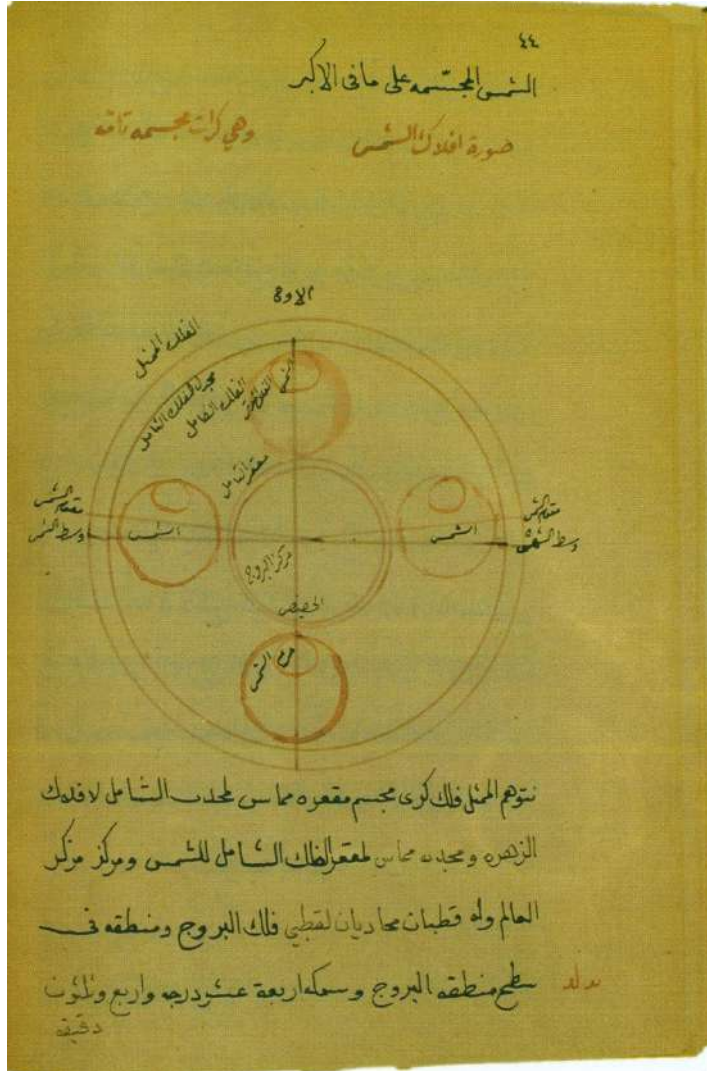 ٤٤
الشمس المجسمه على ما فى الاكبر
صورة افلاك الشمس وهي كرات مجسمه تامه
الاوج
الفلك الممثل
محدب الفلك الشامل
الفلك الشامل
الشمس
مقعر الشامل
مقوم الشمس
وسط الشمس
الشمس
مركز البروج
الشمس
مقوم الشمس
وسط الشمس
الحضيض
جرم الشمس
نتوهم الممثل فلك كرى مجسم مقعره مماس لمحدب الشامل لافلاك
الزهره ومحدبه مماس لمقعر الفلك الشامل للشمس ومركز مركز
العالم وله قطبان محاديان لقطبي فلك البروج ومنطقه فى
سطح منطقه البروج وسمكه اربعة عشر درجه واربع وثلثون
دقيقه